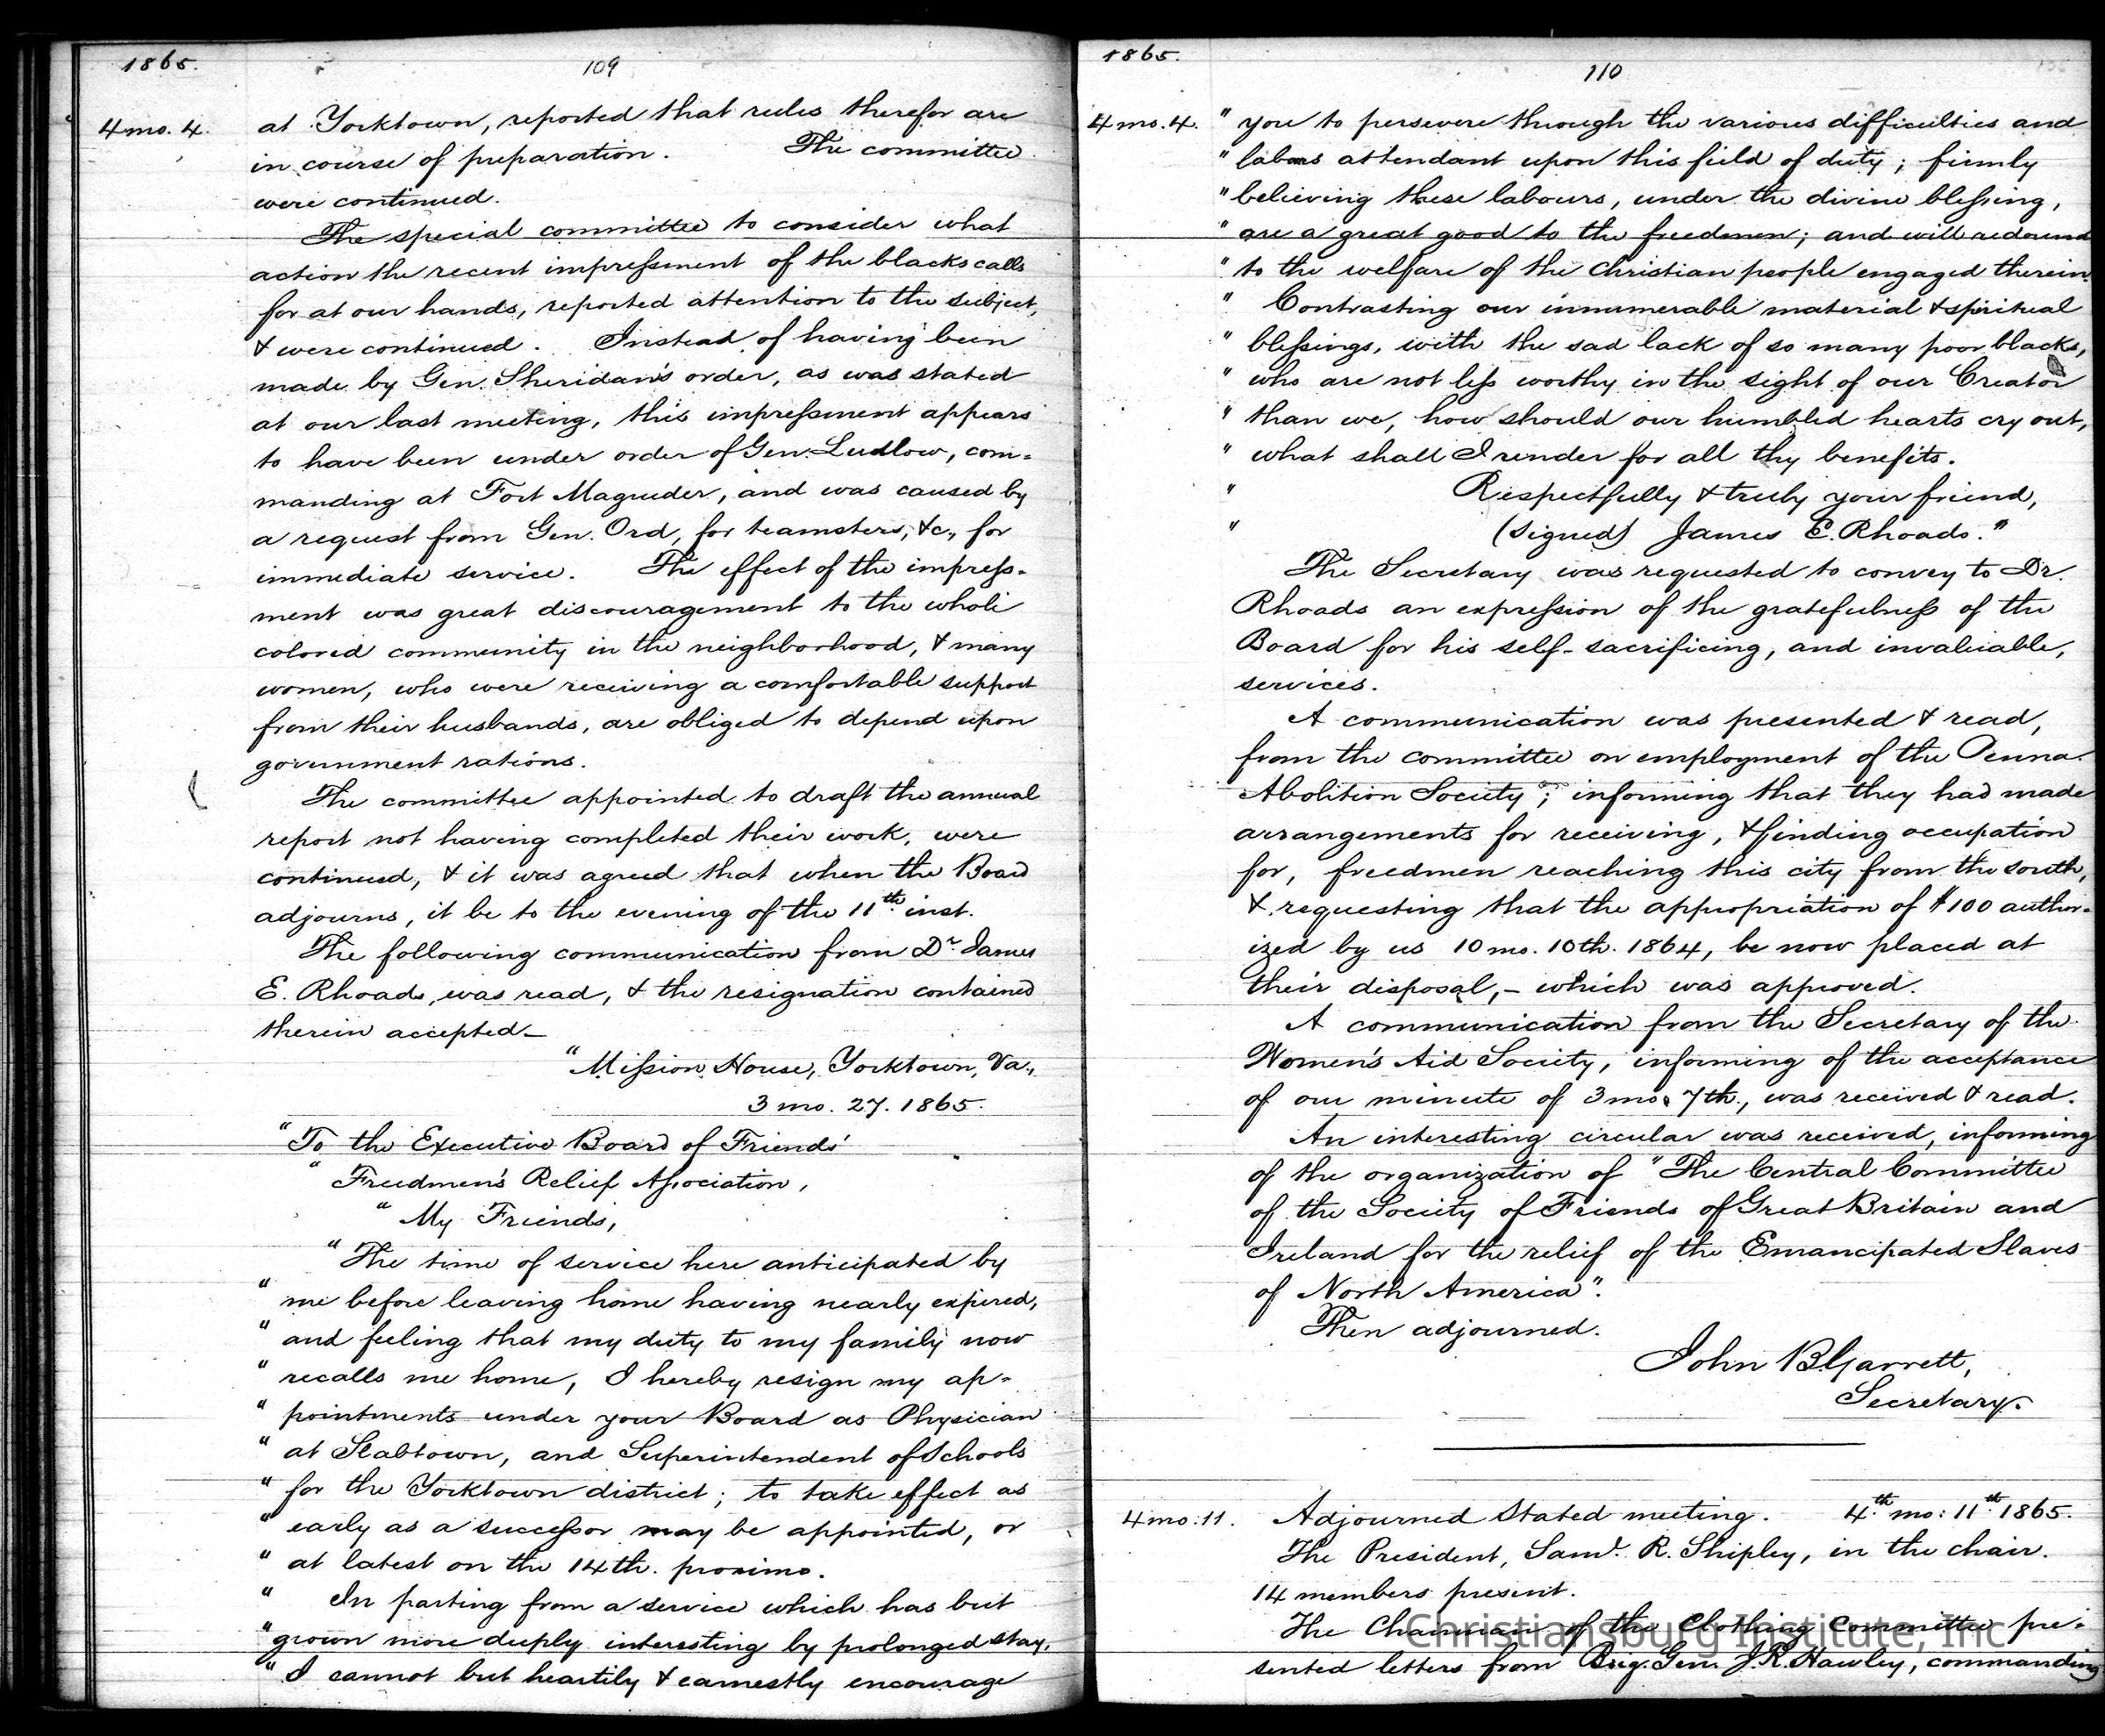 1865.
109
4 mo. 4.
at Yorktown, reported that rules therefor are
in course of preparation. The committee
were continued.
The special committee to consider what
action the recent impressment of the blacks calls
for at our hands, reported attention to the subject,
& were continued. Instead of having been
made by Gen. Sheridan's order, as was stated
at our last meeting, this impressment appears
to have been under order of Gen. Ludlow, com-
manding at Fort Magruder, and was caused by
a request from Gen. Ord, for teamsters, &c., for
immediate service. The effect of the impress-
ment was great discouragement to the whole
colored community in the neighborhood, & many
women, who were receiving a comfortable support
from their husbands, are obliged to depend upon
government rations.
The committee appointed to draft the annual
report not having completed their work, were
continued, & it was agreed that when the Board
adjourns, it be to the evening of the 11th inst.
The following communication from Dr. James
E. Rhoads, was read, & the resignation contained
therein accepted—
"Mission House, Yorktown, Va.,
3 mo. 27. 1865.
"To the Executive Board of Friends'
" Freedmen's Relief Association,
" My Friends,
"The time of service here anticipated by
" me before leaving home having nearly expired,
" and feeling that my duty to my family now
" recalls me home, I hereby resign my ap-
" pointments under your Board as Physician
" at Slabtown, and Superintendent of Schools
" for the Yorktown district; to take effect as
" early as a successor may be appointed, or
" at latest on the 14th. proximo.
" In parting from a service which has but
" grown more deeply interesting by prolonged stay,
" I cannot but heartily & earnestly encourage
1865.
110
4 mo. 4.
" you to persevere through the various difficulties and
" labors attendant upon this field of duty; firmly
" believing these labours, under the divine blessing,
" are a great good to the freedmen; and will redound
" to the welfare of the Christian people engaged therein.
" Contrasting our innumerable material & spiritual
" blessings, with the sad lack of so many poor blacks,
" who are not less worthy in the sight of our Creator
" than we, how should our humbled hearts cry out,
" what shall I render for all thy benefits.
" Respectfully & truly your friend,
" (signed) James E. Rhoads."
The Secretary was requested to convey to Dr.
Rhoads an expression of the gratefulness of the
Board for his self-sacrificing, and invaluable,
services.
A communication was presented & read,
from the committee on employment of the Penna.
Abolition Society; informing that they had made
arrangements for receiving, & finding occupation
for, freedmen reaching this city from the south,
& requesting that the appropriation of $100 author-
ized by us 10 mo. 10th. 1864, be now placed at
their disposal,— which was approved.
A communication from the Secretary of the
Women's Aid Society, informing of the acceptance
of our minute of 3 mo. 7th., was received & read.
An interesting circular was received, informing
of the organization of "The Central Committee
of the Society of Friends of Great Britain and
Ireland for the relief of the Emancipated Slaves
of North America".
Then adjourned.
John B. Garrett,
Secretary.
4 mo. 11.
Adjourned Stated meeting. 4th mo: 11th 1865.
The President, Saml. R. Shipley, in the chair.
14 members present.
The Chairman of the Clothing Committee pre-
sented letters from Brig. Gen. J. R. Hawley, commanding
Christiansburg Institute, Inc